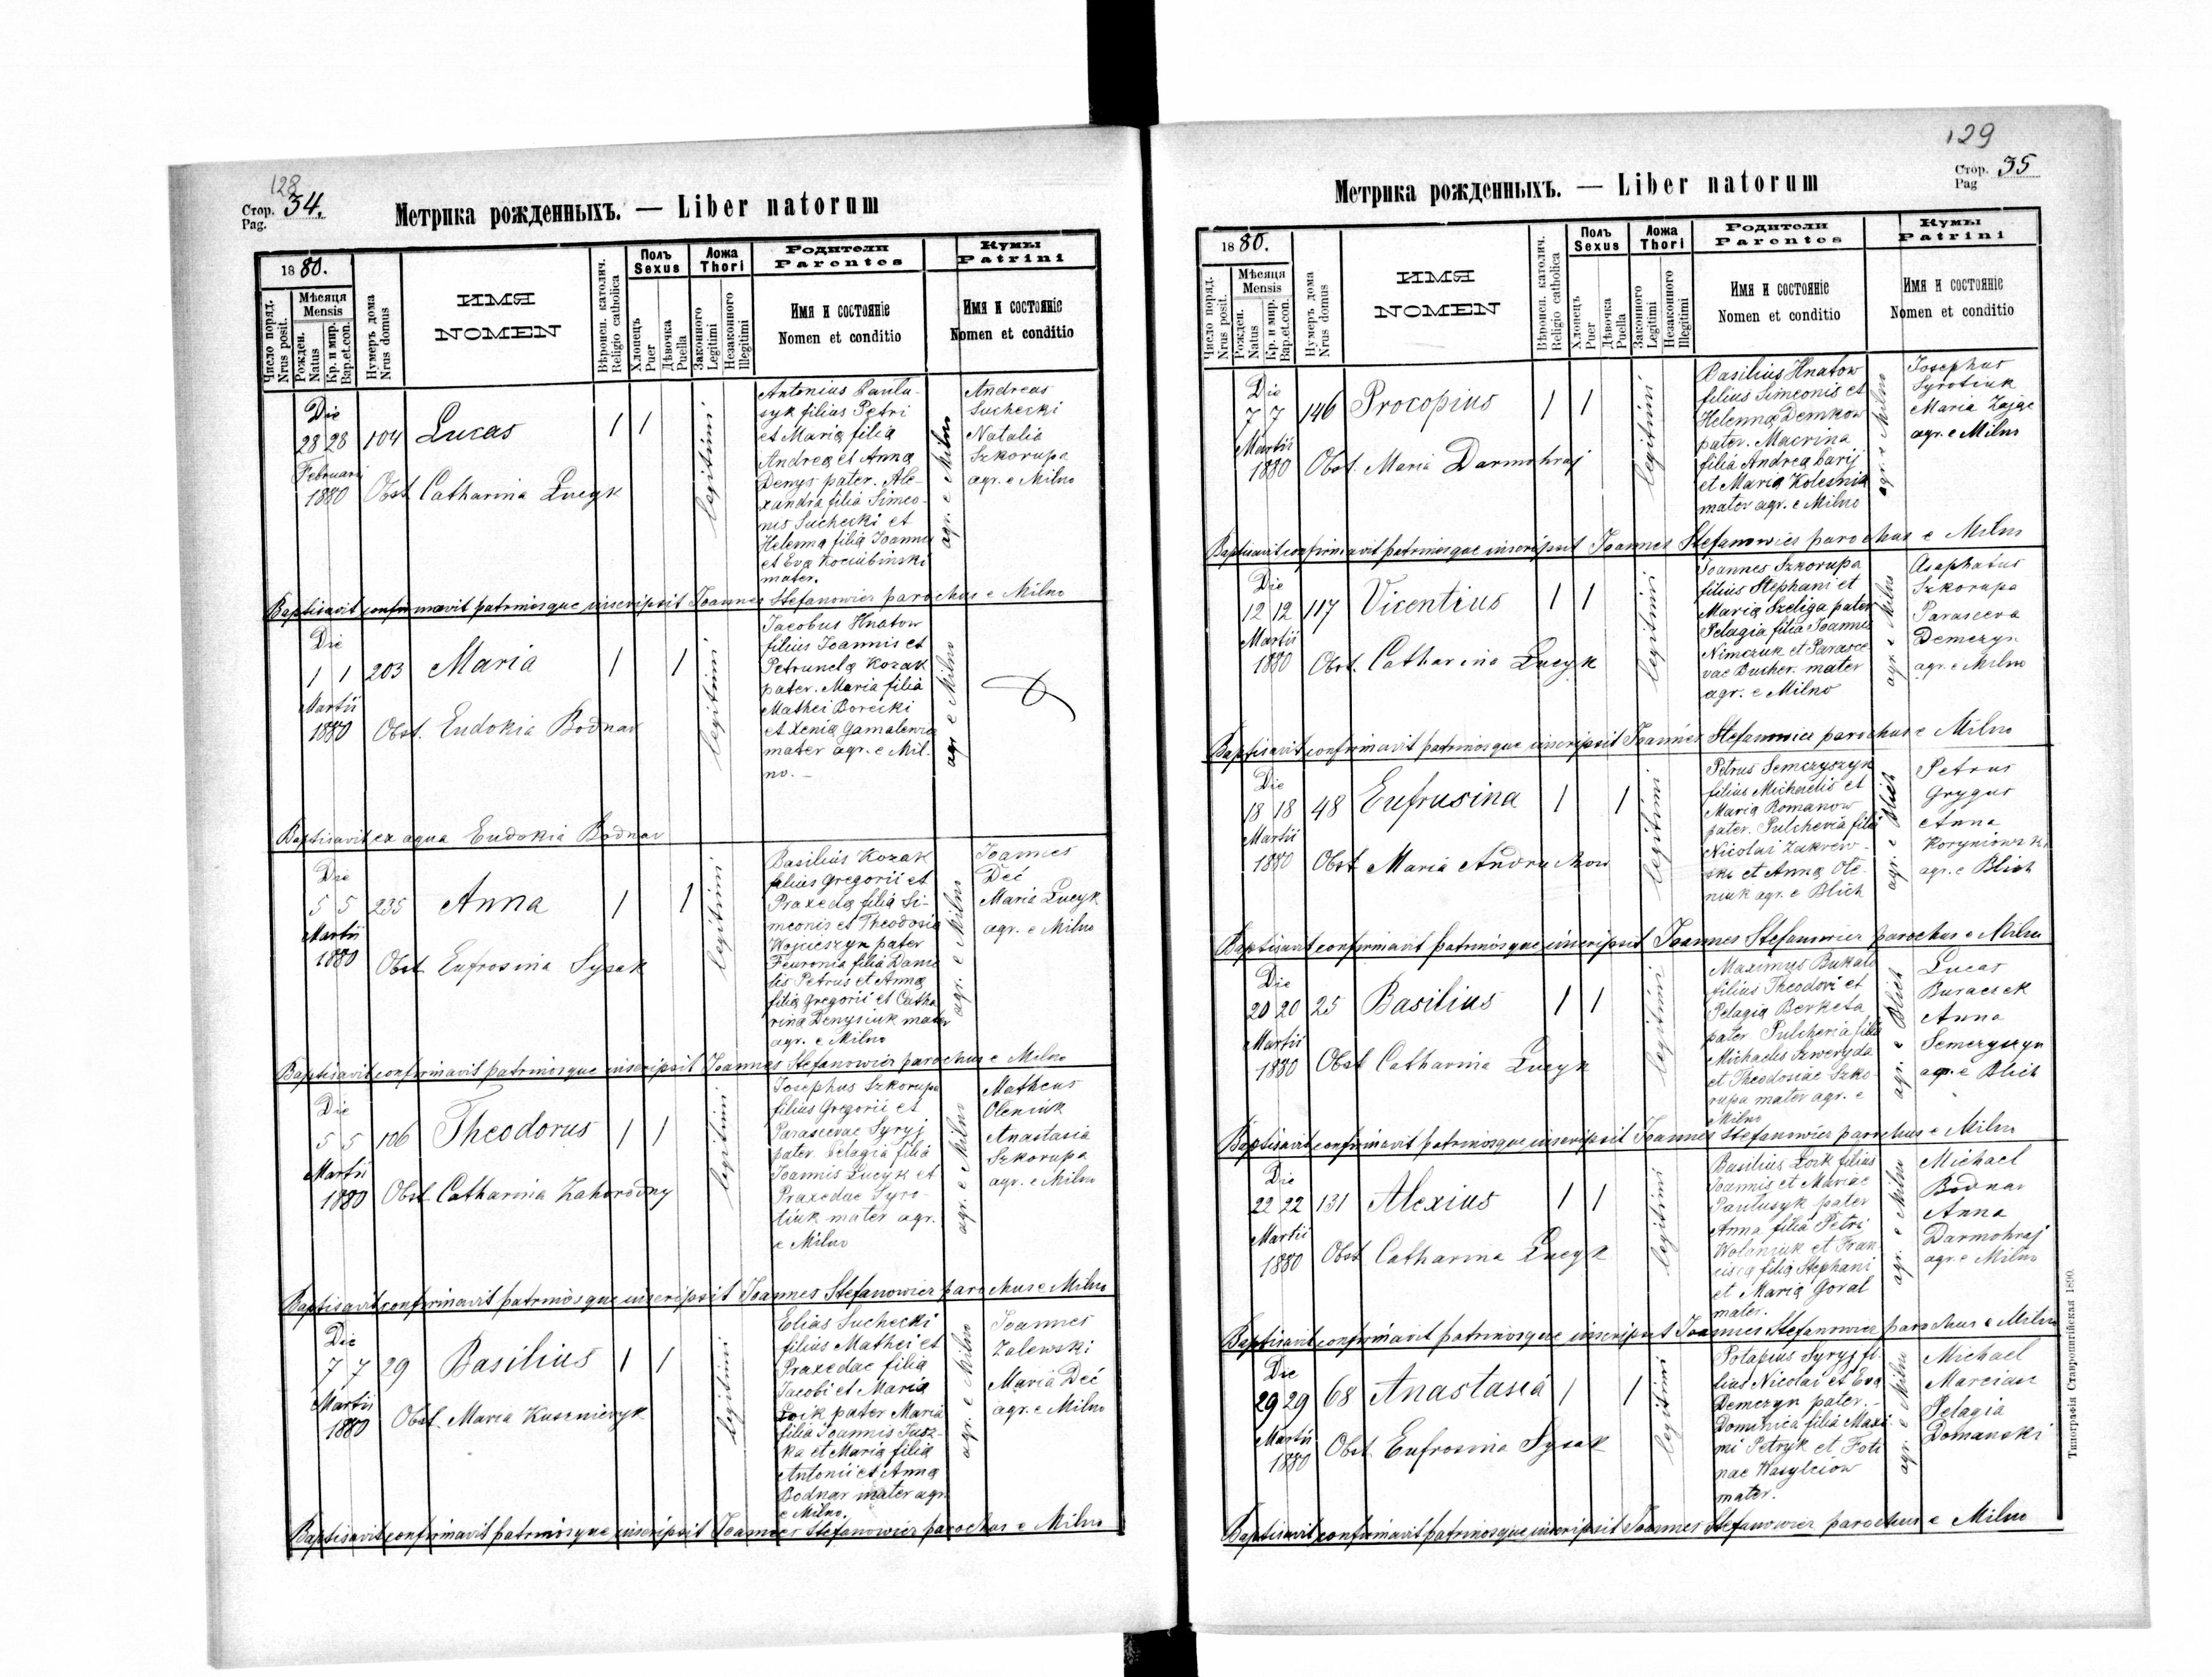 128
Стор. 34.
Pag.
Метрика рожденныхъ. — Liber natorum
1880.
Число поряд.
Nrus posit.
Мѣсяца
Mensis
Рожден.
Natus
Кр. и мир.
Bap.et.con.
Нумеръ дома
Nrus domus
ИМЯ
NOMEN
Вѣроисп. католич.
Religio catholica
Полъ
Sexus
Хлопецъ
Puer
Дѣвочка
Puella
Ложа
Thori
Законного
Legitimi
Незаконного
Illegitimi
Родители
Parentes
Имя и состояніе
Nomen et conditio
Кумы
Patrini
Имя и состояніе
Nomen et conditio
Die
28 28 104 Lucas 1 1
Februarii
1880 Obst. Catharina Lucyk
legitimi
Antonius Paulu-
syk filius Petri
et Maria filia
Andrea et Anna
Denys pater. Ale-
xandra filia Simeo-
nis Suchecki et
Helenna filia Joannis
et Eva Kociubinski
mater.
agr. e Milno
Andreas
Suchecki
Natalia
Szkorupa
agr. e Milno
Baptisavit confirmavit patrinosque inscripsit Joannes Stefanowicz parochus e Milno
Die
1 1 203 Maria 1 1
Martii
1880 Obst. Eudokia Bodnar
legitimi
Jacobus Hnatow
filius Joannis et
Petrunela Kozak
pater. Maria filia
Mathei Borecki
et Xenia Gamalewicz
mater agr. e Mil-
no. –
agr e Milno
Baptisavit ex aqua Eudokia Bodnar
Die
5 5 235 Anna 1 1
Martii
1880 Obst. Eufrosina Sysak
legitimi
Basilius Kozak
filius Gregorii et
Praxeda filia Si-
meonis et Theodosia
Wojcieszyn pater
Feuronia filia Danie
lis Petrus et Anna
filia Gregorii et Catha
rina Denysiuk mater
agr. e Milno
agr. e Milno
Joannes
Deć
Maria Lucyk
agr. e Milno
Baptisavit confirmavit patrinosque inscripsit Joannes Stefanowicz parochus e Milno
Die
5 5 106 Theodorus 1 1
Martii
1880 Obst. Catharina Zahorodny
legitimi
Josephus Szkorupa
filius Gregorii et
Parascevae Syryj
pater. Pelagia filia
Joannis Lucyk et
Praxedae Syro-
tiuk mater agr.
e Milno
agr. e Milno
Matheus
Oleniuk
Anastasia
Szkorupa
agr. e Milno
Baptisavit confirmavit patrinosque inscripsit Joannes Stefanowicz parochus e Milno
Die
7 7 29 Basilius 1 1
Martii
1880 Obst. Maria Kuszniryk
legitimi
Elias Suchecki
filius Mathei et
Praxedae filia
Jacobi et Maria
Łoik pater Maria
filia Joannis Jusz-
ka et Maria filia
Antonii et Anna
Bodnar mater agr.
e Milno.
agr. e Milno
Joannes
Zalewski
Maria Deć
agr. e Milno
Baptisavit confirmavit patrinosque inscripsit Joannes Stefanowicz parochus e Milno
129
Стор. 35
Pag
Метрика рожденныхъ. — Liber natorum
1880.
Число поряд.
Nrus posit.
Мѣсяца
Mensis
Рожден.
Natus
Кр. и мир.
Bap.et.con.
Нумеръ дома
Nrus domus
ИМЯ
NOMEN
Вѣроисп. католич.
Religio catholica
Полъ
Sexus
Хлопецъ
Puer
Дѣвочка
Puella
Ложа
Thori
Законного
Legitimi
Незаконного
Illegitimi
Родители
Parentes
Имя и состояніе
Nomen et conditio
Кумы
Patrini
Имя и состояніе
Nomen et conditio
Die
7 7 146 Procopius 1 1
Martii
1880 Obst. Maria Darmohraj
legitimi
Basilius Hnatow
filius Simeonis et
Helenna Demkow
pater. Macrina
filia Andrea Carij
et Maria Kolesnik
mater agr. e Milno
agr. e Milno
Josephus
Syrotiuk
Maria Zając
agr. e Milno
Baptisavit confirmavit patrinosque inscripsit Joannes Stefanowicz parochus e Milno
Die
12 12 117 Vicentius 1 1
Martii
1880 Obst. Catharina Lucyk
legitimi
Joannes Szkorupa
filius Stephani et
Maria Szeliga pater
Pelagia filia Joannis
Nimczuk et Parasce
vae Bucher. mater
agr. e Milno
agr. e Milno
Asaphatus
Szkorupa
Parasceva
Demczyn
agr. e Milno
Baptisavit confirmavit patrinosque inscripsit Joannes Stefanowicz parochus e Milno
Die
18 18 48 Eufrusina 1 1
Martii
1880 Obst Maria Andruchow
legitimi
Petrus Semczyszyn
filius Michaelis et
Maria Romanow
pater. Pulcheria filia
Nicolai Zakrew-
ski et Anna Ole-
niuk agr. e Blich
agr. e Blich
Petrus
Grygus
Anna
Koryniowska
agr. e Blich
Baptisavit confirmavit patrinosque inscripsit Joannes Stefanowicz parochus e Milno
Die
20 20 25 Basilius 1 1
Martii
1880 Obst Catharina Lucyk
legitimi
Maximus Bukało
filius Theodori et
Pelagia Berketa
pater Pulcheria filia
Michaelis Szweryda
et Theodosiae Szko-
rupa mater agr. e
Milno
agr. e Blich
Lucas
Buraczek
Anna
Semczyszyn
agr. e Blich
Baptisavit confirmavit patrinosque inscripsit Joannes Stefanowicz parochus e Milno
Die
22 22 131 Alexius 1 1
Martii
1880 Obst Catharina Lucyk
legitimi
Basilius Łoik filius
Joannis et Mariae
Paulusyk pater
Anna filia Petri
Wolaniuk et Fran
cisca filia Stephani
et Maria Goral
mater.
agr. e Milno
Michael
Bodnar
Anna
Darmohraj
agr. e Milno
Baptisavit confirmavit patrinosque inscripsit Joannes Stefanowicz parochus e Milno
Die
29 29 68 Anastasia 1 1
Martii
1880 Obst. Eufrosina Sysak
legitimi
Potapius Syryj fi-
lius Nicolai et Eva
Demczyn pater. –
Dominica filia Maxi-
mi Petryk et Foti
nae Wasylciow
mater.
agr. e Milno
Michael
Marcian
Pelagia
Domanski
Baptisavit confirmavit patrinosque inscripsit Joannes Stefanowicz parochus e Milno
Типографія Ставропигійская 1890.